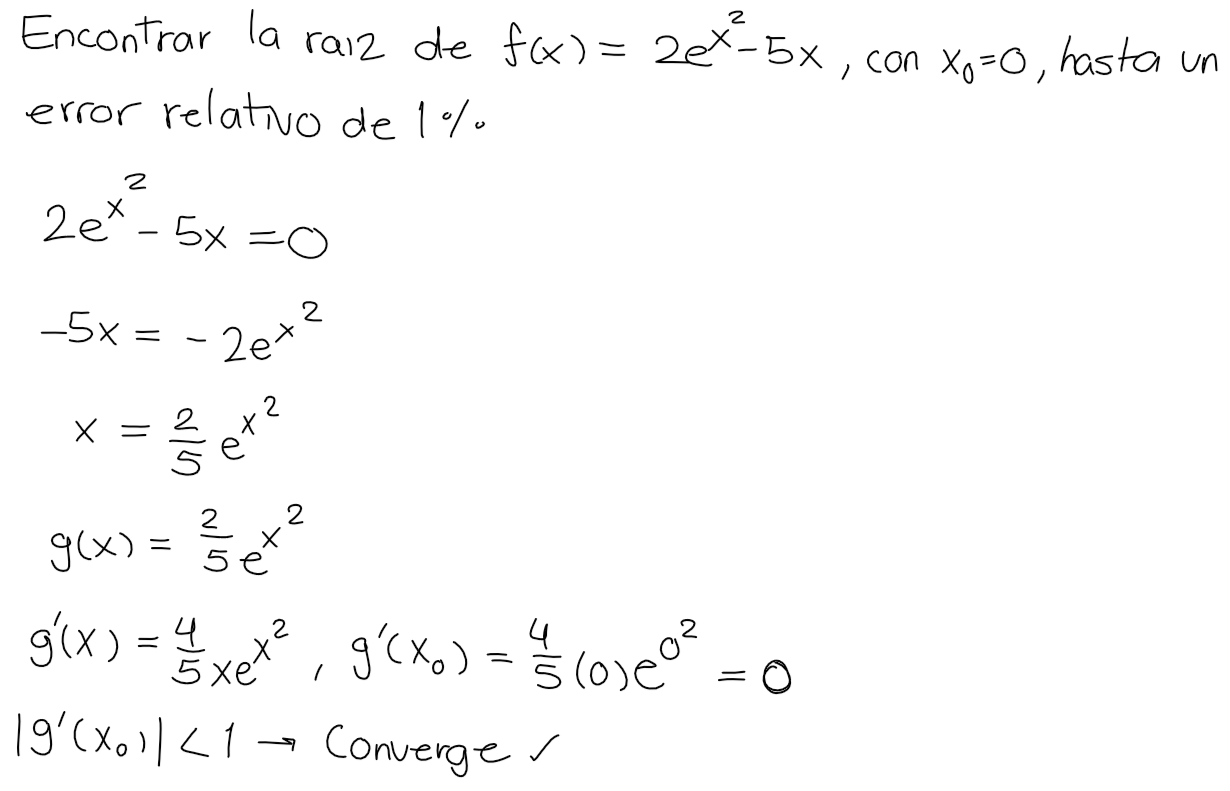 Encontrar la raiz de f(x) = 2e^{x^2} - 5x, con x₀=0, hasta un
error relativo de 1%
2e^{x^2} - 5x = 0
-5x = - 2e^{x^2}
x = \frac{2}{5} e^{x^2}
g(x) = \frac{2}{5} e^{x^2}
g'(x) = \frac{4}{5} xe^{x^2}, g'(x₀) = \frac{4}{5} (0)e^{0^2} = 0
|g'(x₀)| < 1 → Converge ✓